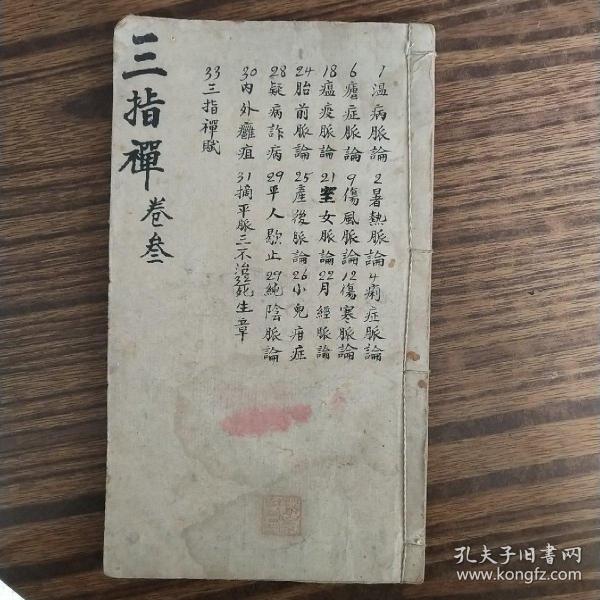 1 温病脈論 2 暑熱脈論 4 痢症脈論
6 瘧症脈論 9 傷風脈論 12 傷寒脈論
18 瘟疫脈論 21 室女脈論 22 月經脈論
24 胎前脈論 25 產後脈論 26 小兒疳症
28 疑病詐病 29 平人歇止 29 純陰脈論
30 內外癰疽 31 摘平脈三不治 32 死生章
33 三指禪賦
三指禪 卷叁
孔夫子旧書网
www.kongfz.com